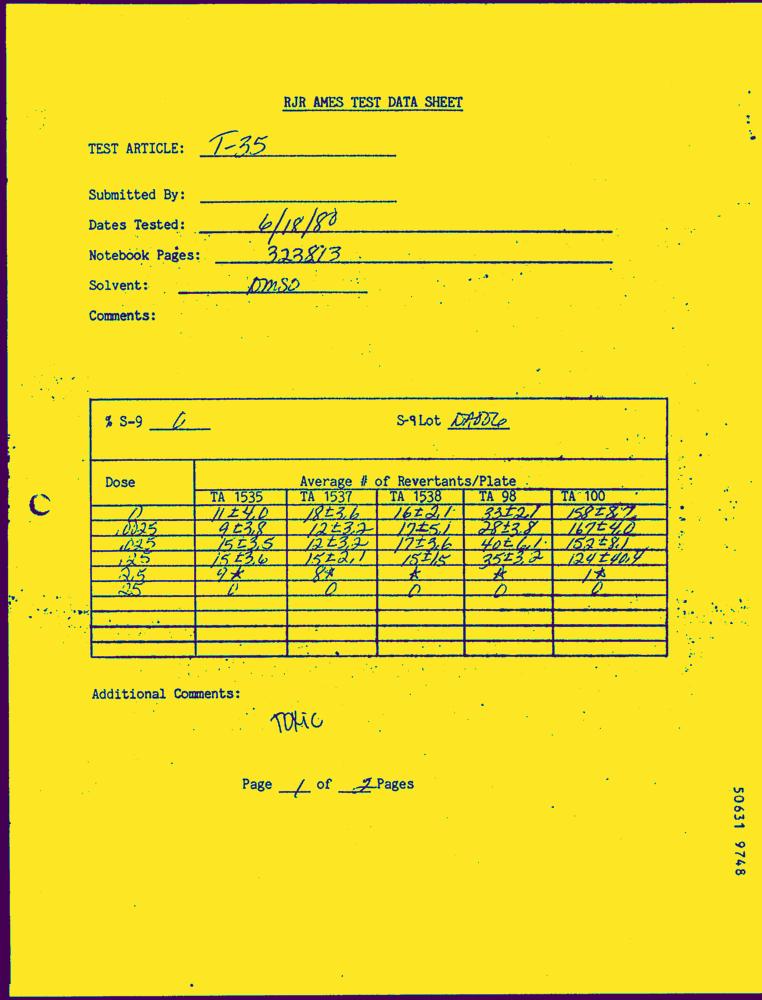 RJR AMES TEST DATA SHEET
TEST ARTICLE: T-35
Submitted By:
Dates Tested: 6/18/80
Notebook Pages: 323813
Solvent: DMSO
Comments:
% S-9
S-9 Lot
Dose Average # of Revertants/Plate
TA 1535 TA 1537 TA 1538 TA 98 TA 100
0 11±4.0 18±3.6 16±2.1 33±2.1 158±8.7
.0025 9±3.8 12±3.2 17±5.1 28±3.8 167±4.0
.025 15±3.5 12±3.2 17±3.6 40±6.1 152±8.1
.25 15±3.6 15±2.1 15±1.5 35±3.2 124±40.4
2.5 9* 8* * * 1*
25 0 0 0 0 0
Additional Comments:
TOXIC
Page 1 of 2 Pages
50631 9748